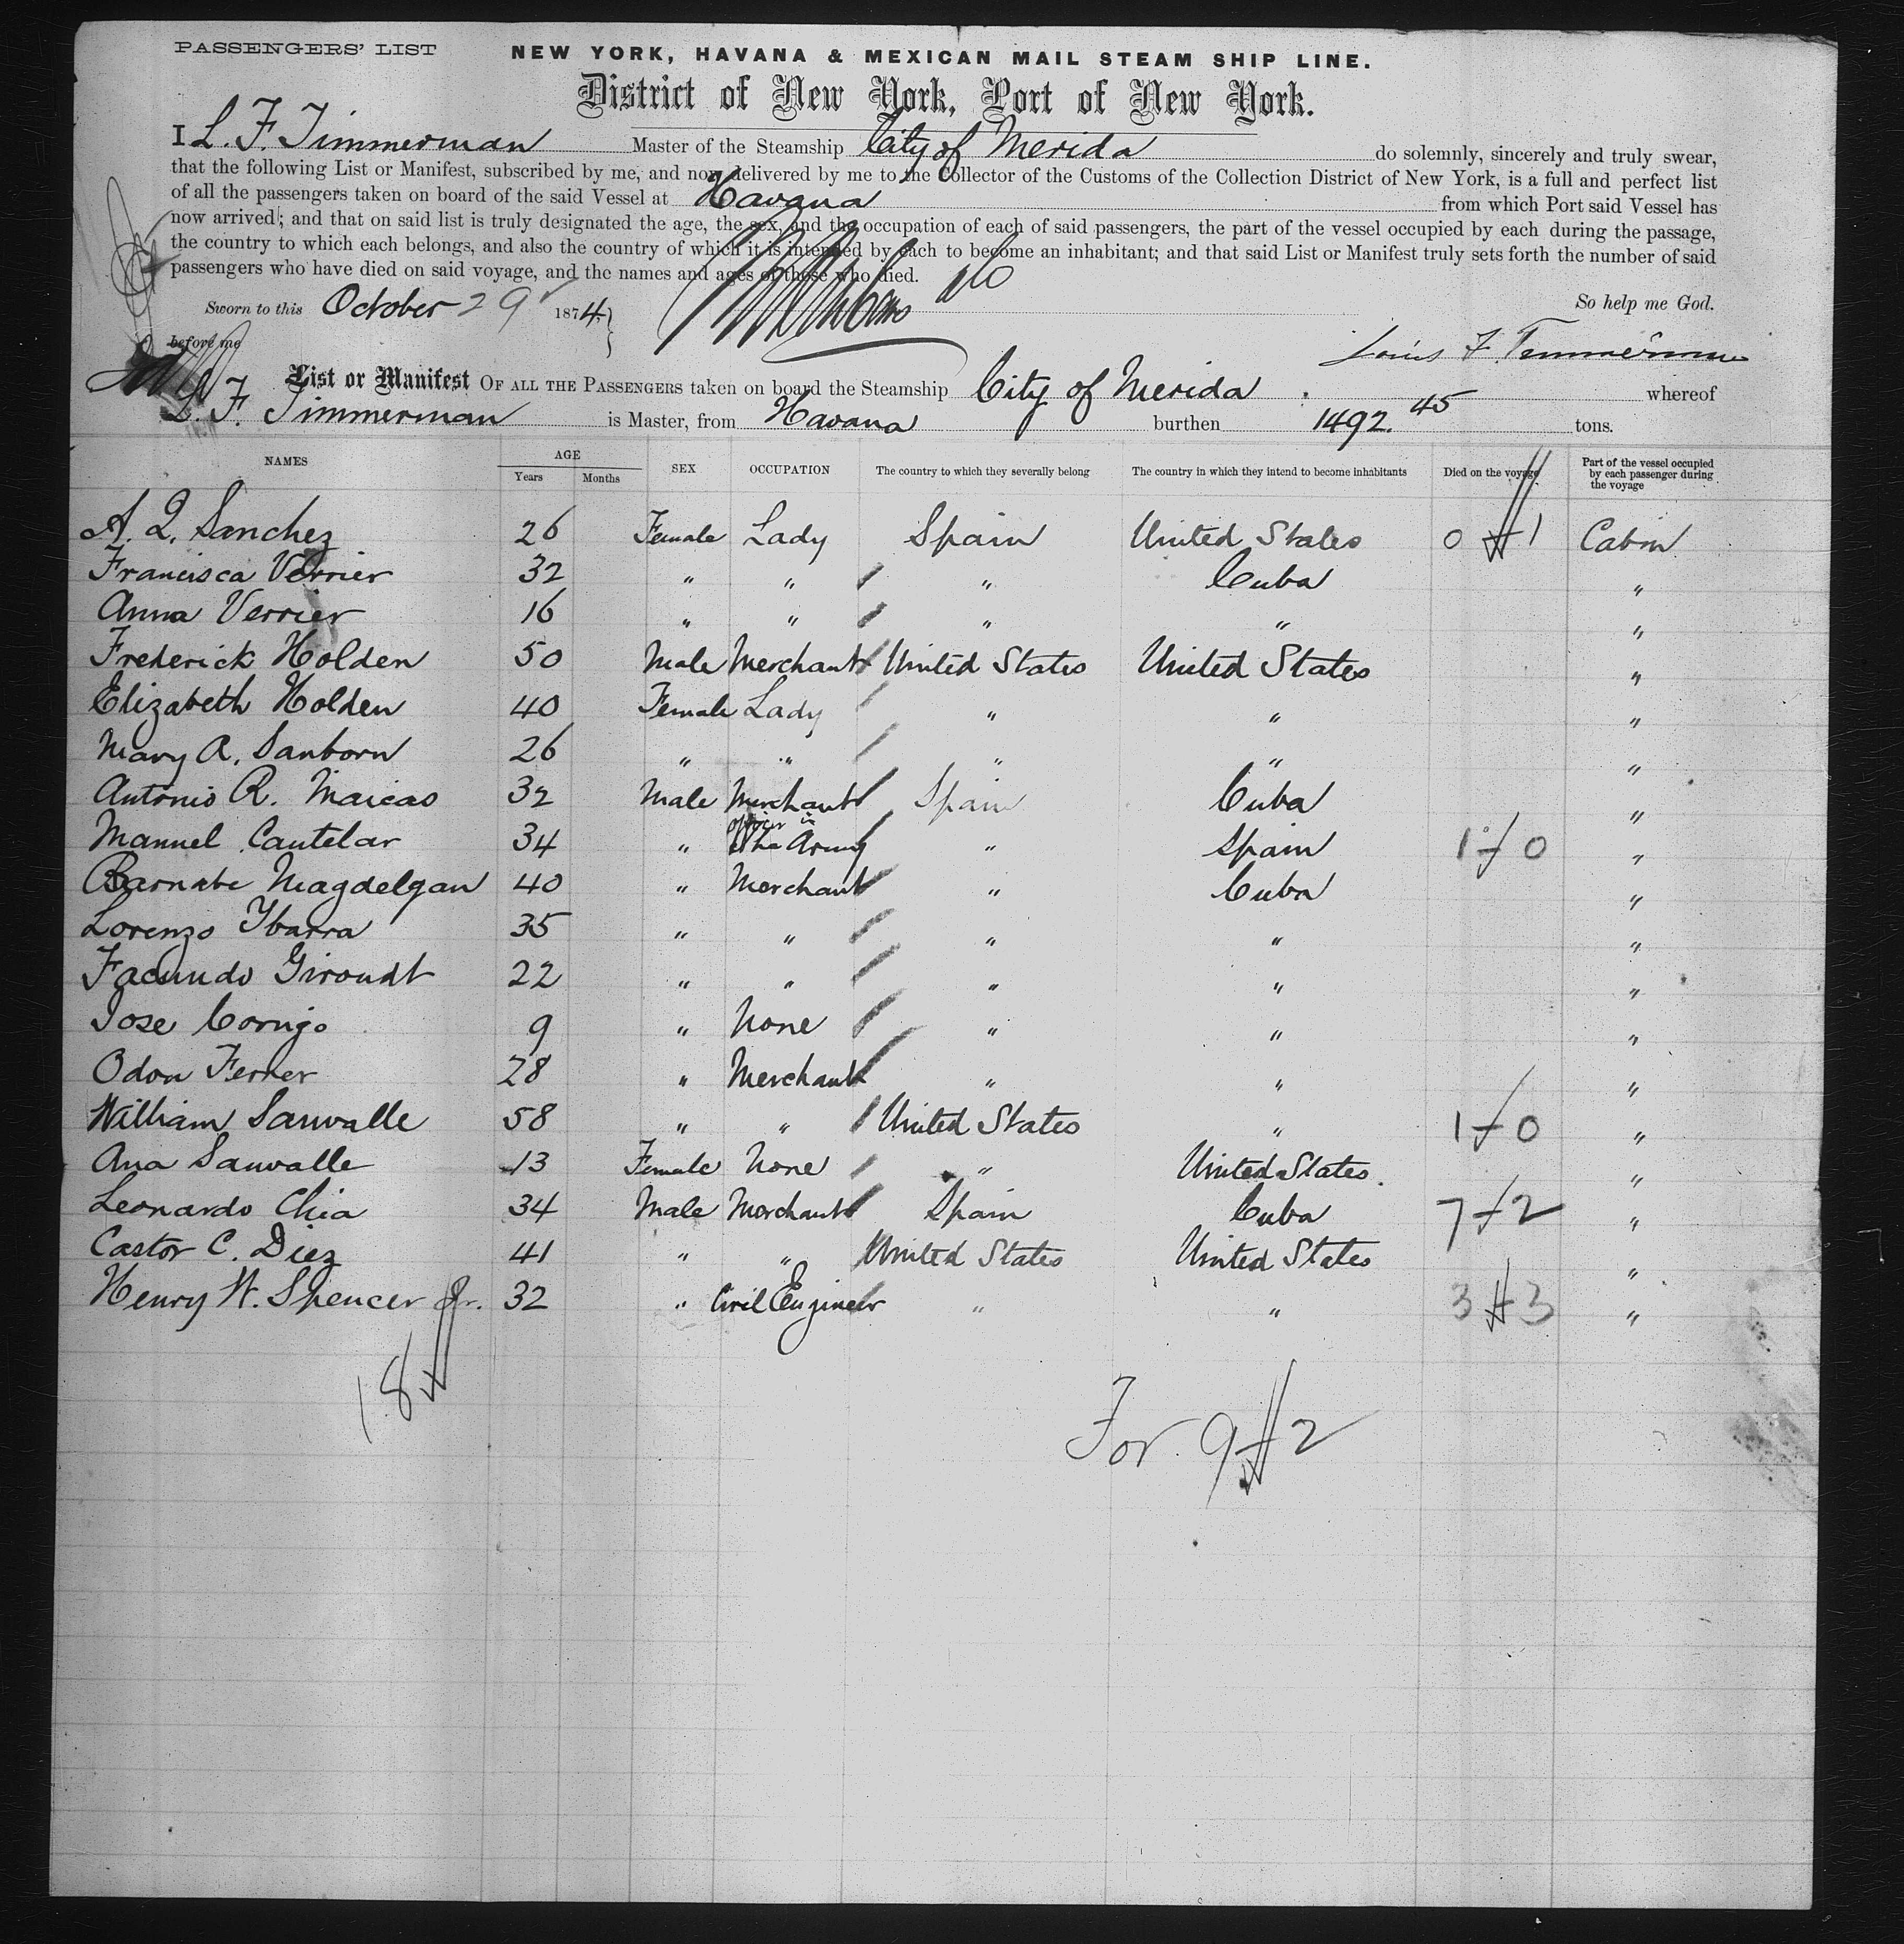 PASSENGERS' LIST
NEW YORK, HAVANA & MEXICAN MAIL STEAM SHIP LINE.
District of New York, Port of New York.
I L. F. Timmerman Master of the Steamship City of Merida do solemnly, sincerely and truly swear,
that the following List or Manifest, subscribed by me, and now delivered by me to the Collector of the Customs of the Collection District of New York, is a full and perfect list
of all the passengers taken on board of the said Vessel at Havana from which Port said Vessel has
now arrived; and that on said list is truly designated the age, the sex, and the occupation of each of said passengers, the part of the vessel occupied by each during the passage,
the country to which each belongs, and also the country of which it is intended by each to become an inhabitant; and that said List or Manifest truly sets forth the number of said
passengers who have died on said voyage, and the names and ages of those who died.
Sworn to this October 29 1874, So help me God.
before me Louis F. Timmerman
List or Manifest OF ALL THE PASSENGERS taken on board the Steamship City of Merida whereof
L. F. Timmerman is Master, from Havana burthen 1492.45 tons.
NAMES AGE Years Months SEX OCCUPATION The country to which they severally belong The country in which they intend to become inhabitants Died on the voyage Part of the vessel occupied by each passenger during the voyage
A. Q. Sanchez 26 Female Lady Spain United States 0 1 Cabin
Francisca Verrier 32 " " " Cuba "
Anna Verrier 16 " " " " "
Frederick Holden 50 Male Merchant United States United States "
Elizabeth Holden 40 Female Lady " " "
Mary A. Sanborn 26 " " " " "
Antonio R. Maicas 32 Male Merchant Spain Cuba "
Manuel Cautelar 34 " officer in the Army " Spain 1 0 "
Barnabe Magdelgan 40 " Merchant " Cuba "
Lorenzo Ybarra 35 " " " " "
Facundo Giroudt 22 " " " " "
Jose Cornigo 9 " None " " "
Odon Ferrer 28 " Merchant " " "
William Sauvalle 58 " " United States " 1 0 "
Ana Sauvalle 13 Female None " United States. "
Leonardo Chia 34 Male Merchant Spain Cuba 7 2 "
Castor C. Diez 41 " " United States United States "
Henry W. Spencer Jr. 32 " Civil Engineer " " 3 3 "
18
For. 9 2